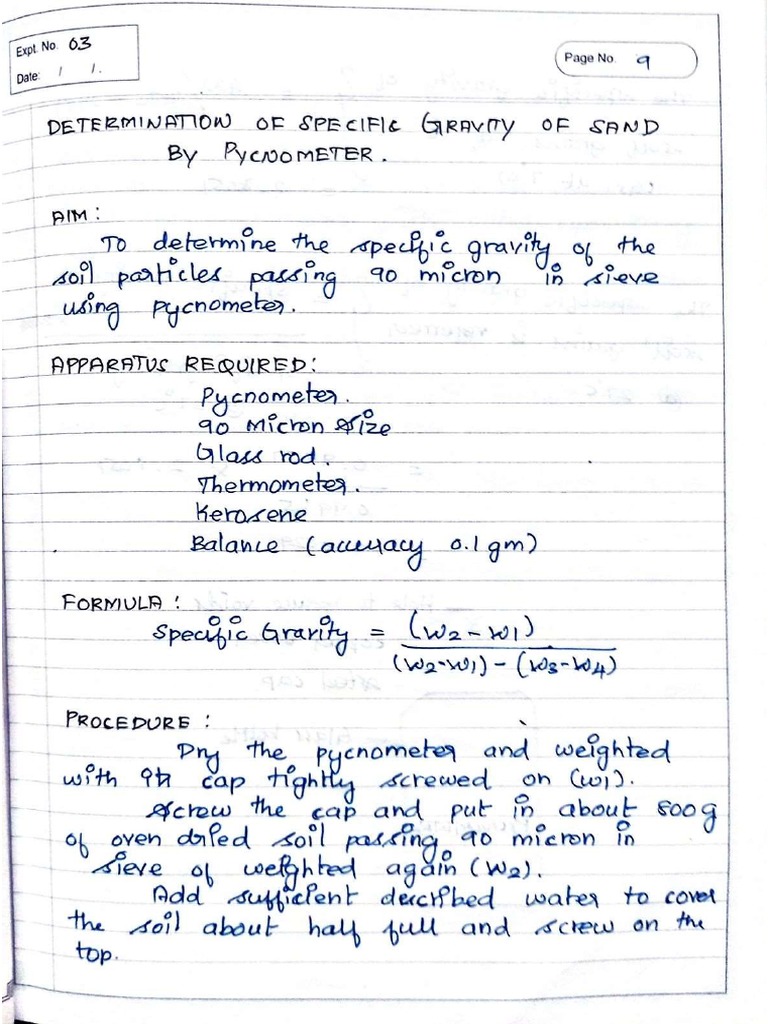 Expt. No. 03
Date: / /.
Page No. 9
DETERMINATION OF SPECIFIC GRAVITY OF SAND
BY PYCNOMETER.
AIM:
To determine the specific gravity of the
soil particles passing 90 micron in sieve
using pycnometer.
APPARATUS REQUIRED:
Pycnometer.
90 Micron Size
Glass rod.
Thermometer.
Kerosene
Balance (accuracy 0.1 gm)
FORMULA:
Specific Gravity = (W2-W1) / (W2-W1) - (W3-W4)
PROCEDURE:
Dry the pycnometer and weighted
with its cap tightly screwed on (W1).
Screw the cap and put in about 800g
of oven dried soil passing 90 micron in
sieve of weighted again (W2).
Add sufficient described water to cover
the soil about half full and screw on the
top.